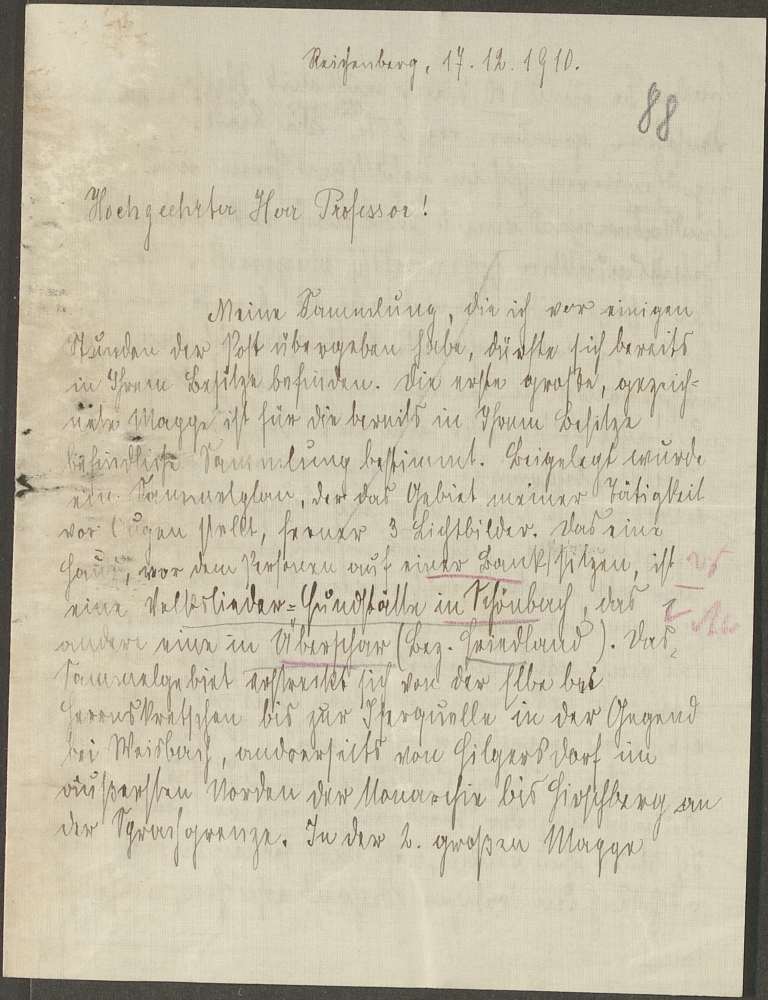 Reichenberg, 17. 12. 1910.
88
Hochgeehrter Herr Professor!
Meine Sammlung, die ich vor einigen
Stunden der Post übergeben habe, dürfte sich bereits
in Ihrem Besitze befinden. Die erste große, gezeich-
nete Mappe ist für die bereits in Ihrem Besitze
befindliche Sammlung bestimmt. Beigelegt wurde
ein Sammelplan, der das Gebiet meiner Tätigkeit
vor Augen stellt, ferner 3 Lichtbilder. Das eine
Haus, vor dem Personen auf einer Bank sitzen, ist
eine Volkslieder-Fundstätte in Schönbach, das
andere eine in Überschar (Bez. Friedland). Das
Sammelgebiet erstreckt sich von der Elbe bei
Herrnskretschen bis zur Iserquelle in der Gegend
bei Weisbach, anderseits von Hilgersdorf im
äußersten Norden der Monarchie bis Hirschberg an
der Sprachgrenze. In der 2. großen Mappe